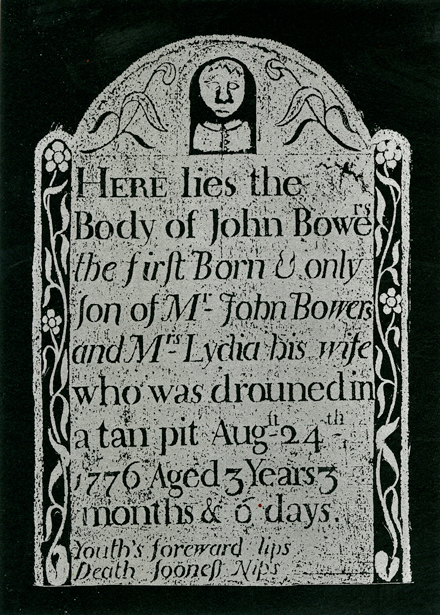 HERE lies the
Body of John Bowers
the firſt Born & only
ſon of Mr. John Bowers
and Mrs. Lydia his wife
who was drouned in
a tan pit Augſt 24th
1776 Aged 3 Years 3
months & 6 days.
Youth's foreward ſlips
Death ſooneſt Nips